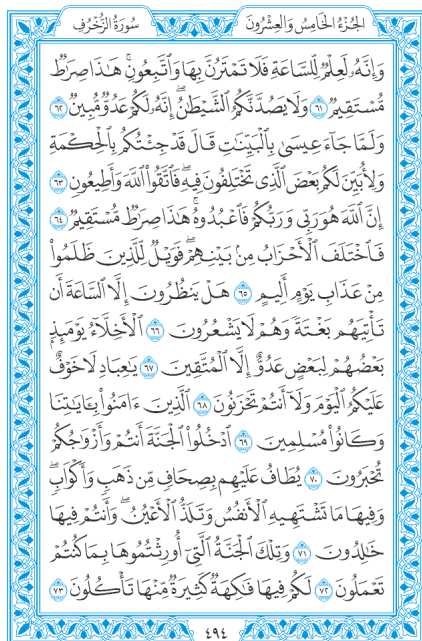 سُورَةُ الزُّخْرُفِ
الجُزْءُ الخَامِسُ وَالعِشْرُونَ
وَإِنَّهُۥ لَعِلْمٌ لِّلسَّاعَةِ فَلَا تَمْتَرُنَّ بِهَا وَٱتَّبِعُونِۚ هَٰذَا صِرَٰطٌ
مُّسْتَقِيمٌ ٦١ وَلَا يَصُدَّنَّكُمُ ٱلشَّيْطَٰنُۖ إِنَّهُۥ لَكُمْ عَدُوٌّ مُّبِينٌ ٦٢
وَلَمَّا جَآءَ عِيسَىٰ بِٱلْبَيِّنَٰتِ قَالَ قَدْ جِئْتُكُم بِٱلْحِكْمَةِ
وَلِأُبَيِّنَ لَكُم بَعْضَ ٱلَّذِى تَخْتَلِفُونَ فِيهِۖ فَٱتَّقُوا۟ ٱللَّهَ وَأَطِيعُونِ ٦٣
إِنَّ ٱللَّهَ هُوَ رَبِّى وَرَبُّكُمْ فَٱعْبُدُوهُۚ هَٰذَا صِرَٰطٌ مُّسْتَقِيمٌ ٦٤
فَٱخْتَلَفَ ٱلْأَحْزَابُ مِنۢ بَيْنِهِمْۖ فَوَيْلٌ لِّلَّذِينَ ظَلَمُوا۟
مِنْ عَذَابِ يَوْمٍ أَلِيمٍ ٦٥ هَلْ يَنظُرُونَ إِلَّا ٱلسَّاعَةَ أَن
تَأْتِيَهُم بَغْتَةً وَهُمْ لَا يَشْعُرُونَ ٦٦ ٱلْأَخِلَّآءُ يَوْمَئِذٍۭ
بَعْضُهُمْ لِبَعْضٍ عَدُوٌّ إِلَّا ٱلْمُتَّقِينَ ٦٧ يَٰعِبَادِ لَا خَوْفٌ
عَلَيْكُمُ ٱلْيَوْمَ وَلَآ أَنتُمْ تَحْزَنُونَ ٦٨ ٱلَّذِينَ ءَامَنُوا۟ بِـَٔايَٰتِنَا
وَكَانُوا۟ مُسْلِمِينَ ٦٩ ٱدْخُلُوا۟ ٱلْجَنَّةَ أَنتُمْ وَأَزْوَٰجُكُمْ
تُحْبَرُونَ ٧٠ يُطَافُ عَلَيْهِم بِصِحَافٍ مِّن ذَهَبٍ وَأَكْوَابٍۖ
وَفِيهَا مَا تَشْتَهِيهِ ٱلْأَنفُسُ وَتَلَذُّ ٱلْأَعْيُنُۖ وَأَنتُمْ فِيهَا
خَٰلِدُونَ ٧١ وَتِلْكَ ٱلْجَنَّةُ ٱلَّتِىٓ أُورِثْتُمُوهَا بِمَا كُنتُمْ
تَعْمَلُونَ ٧٢ لَكُمْ فِيهَا فَٰكِهَةٌ كَثِيرَةٌ مِّنْهَا تَأْكُلُونَ ٧٣
٤٩٤